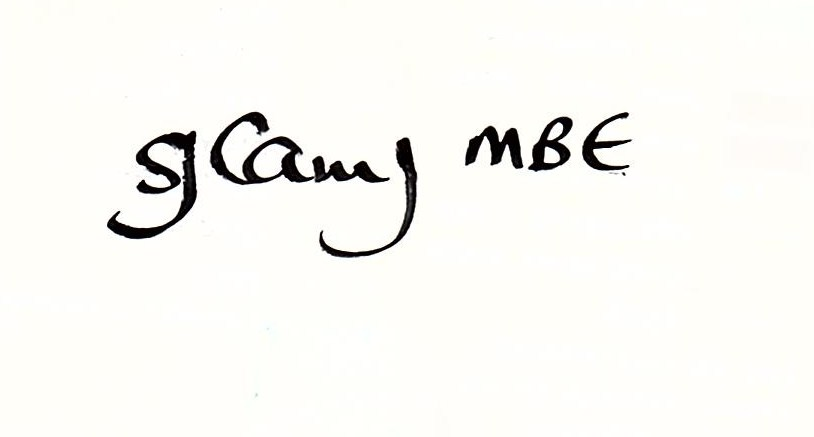 SJCamy MBE